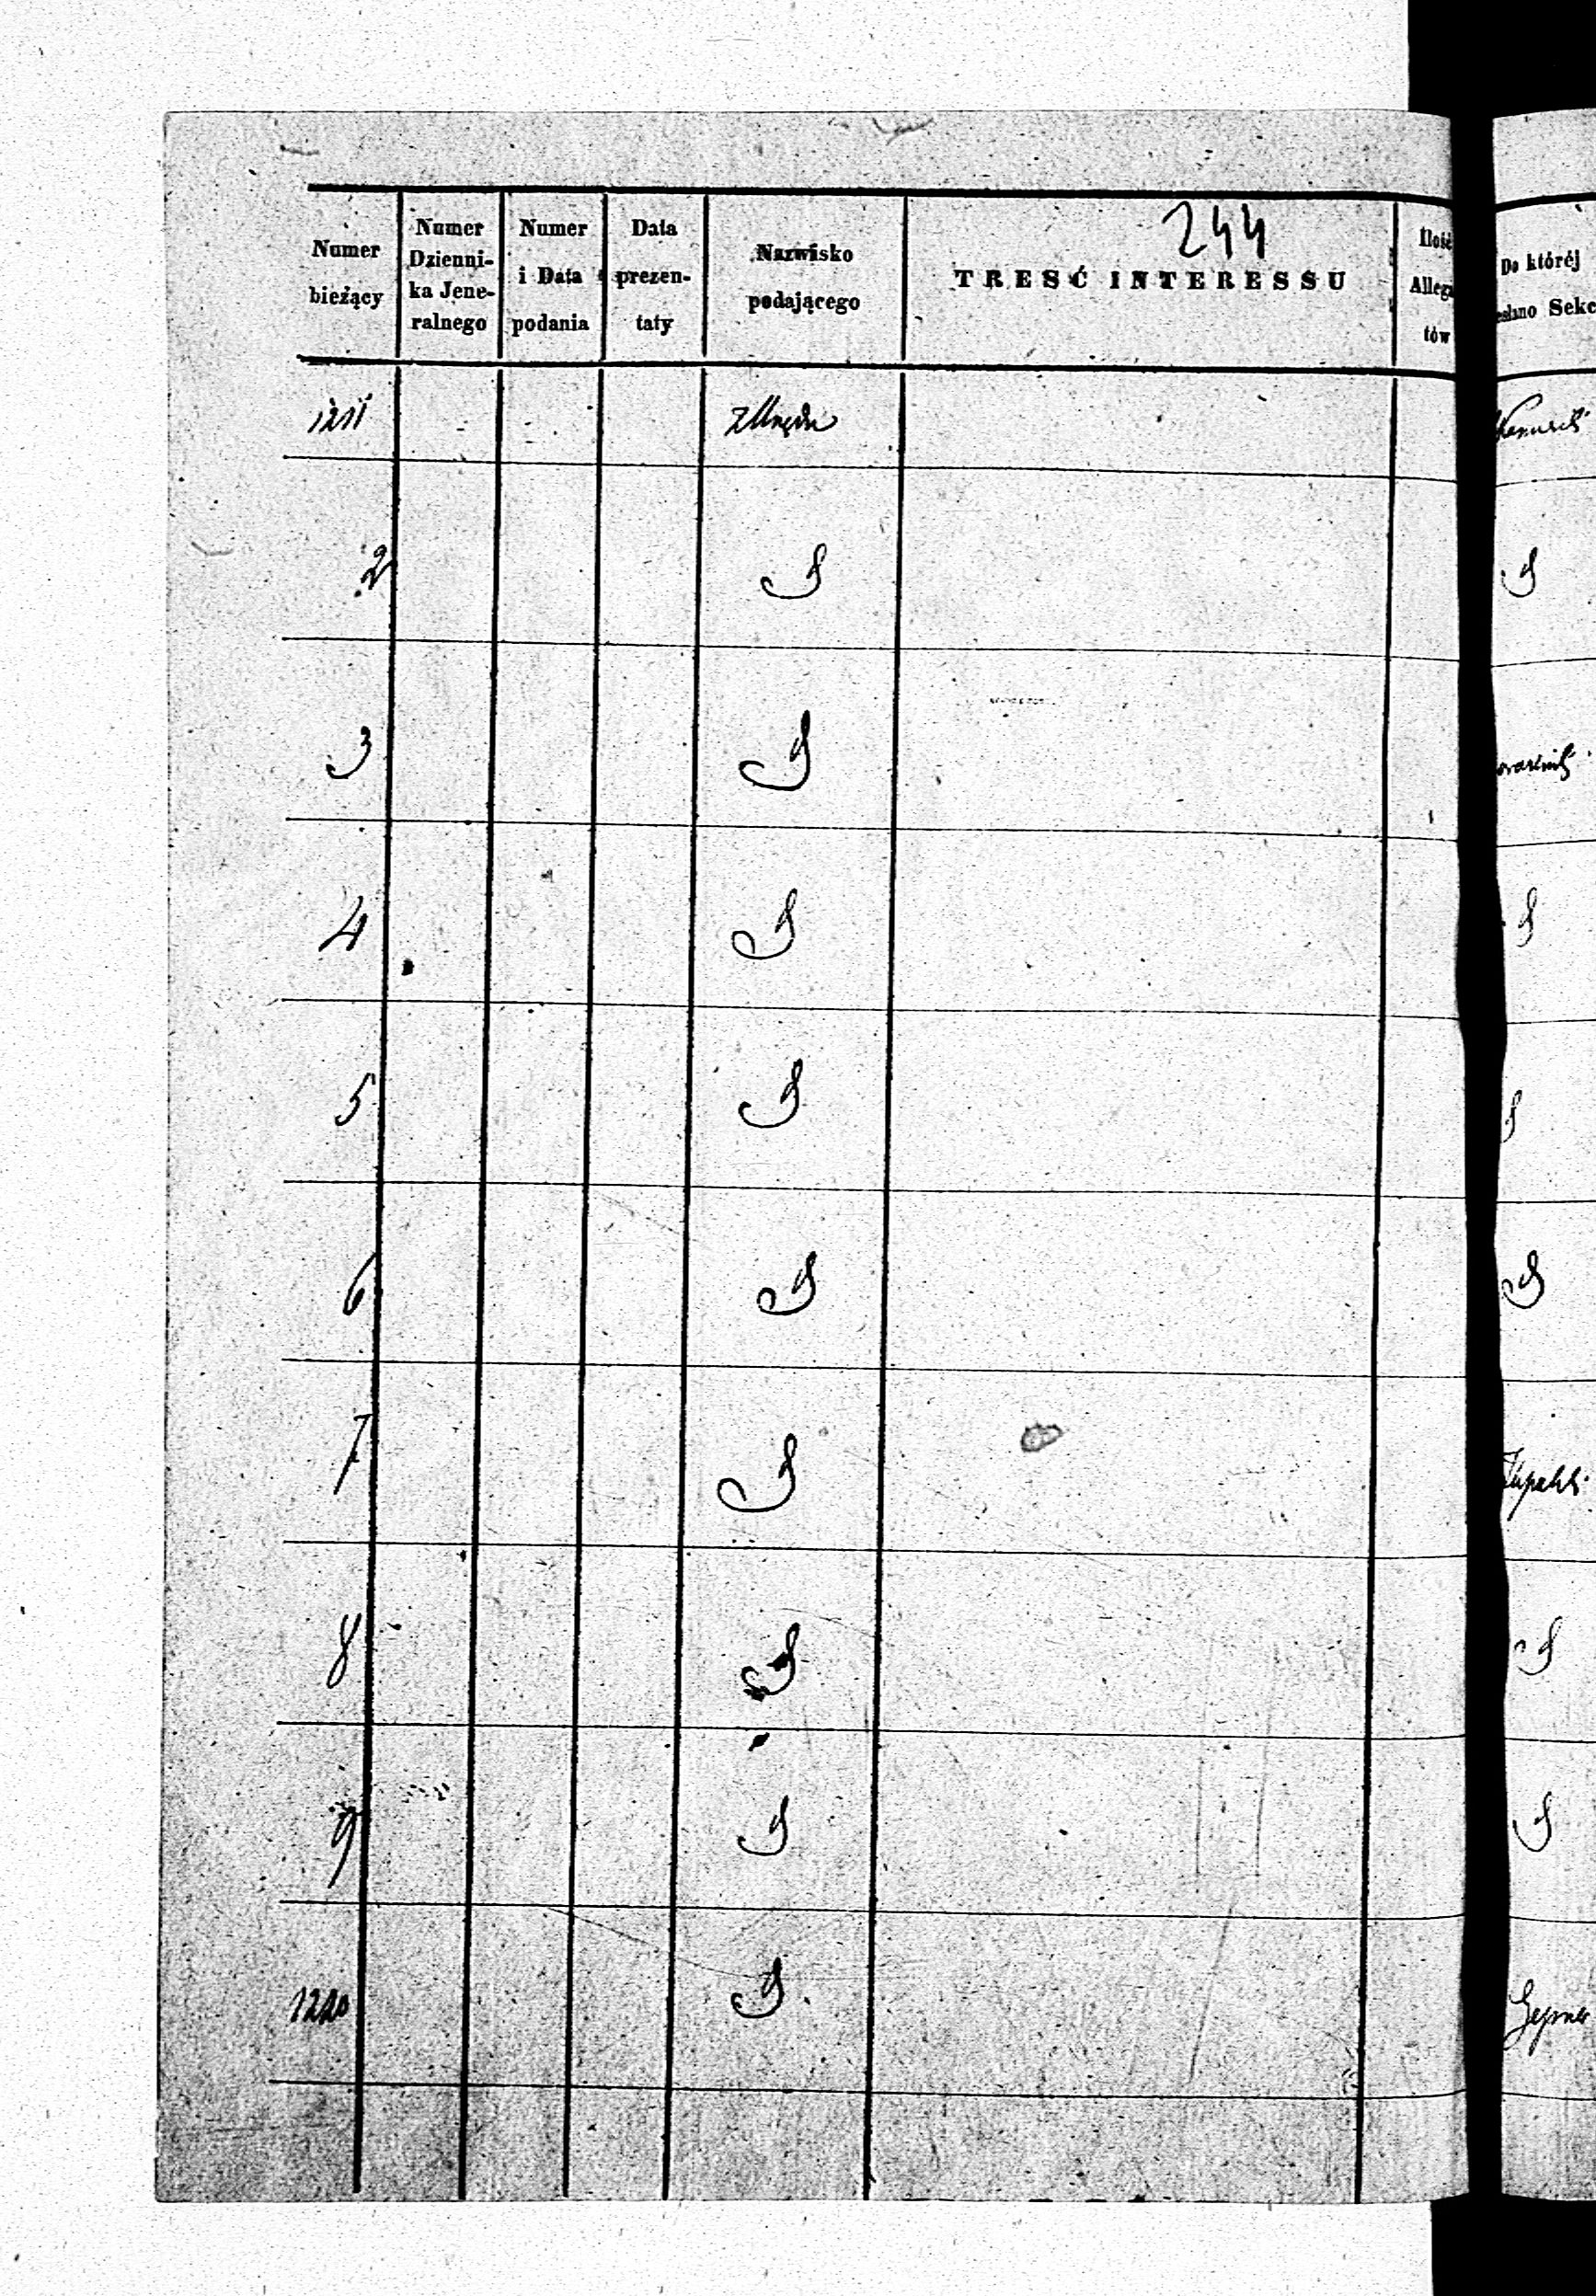 244
Numer bieżący
Numer Dzienni-ka Jene-ralnego
Numer i Data podania
Data prezen-taty
Nazwisko podającego
TRESĆ INTERESSU
Ilość Allega tów
Do któréj esłano Sekc
1211 z Urzędu
2 S
3 S
4 S
5 S
6 S
7 S
8 S
9 S
1220 S